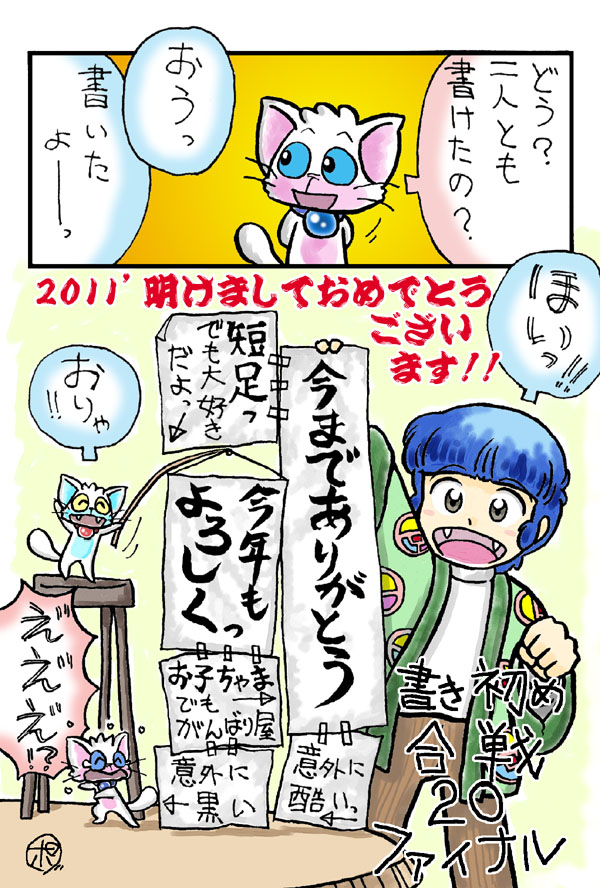 どう？
二人とも
書けたの？
おうっ
書いた
よーーっ
2011’明けましておめでとう
ござい
ます!!
ほいっ!!
今まであり
がとう
意外に
酷いっ
←
短足っ
でも大好き
だよっ
今年も
よろしくっ
お子ちゃま
でも
がんばり屋
意外に
黒い
←
おりゃ!!
えええ!?
書き初め
合戦
20
ファイナル
ポ